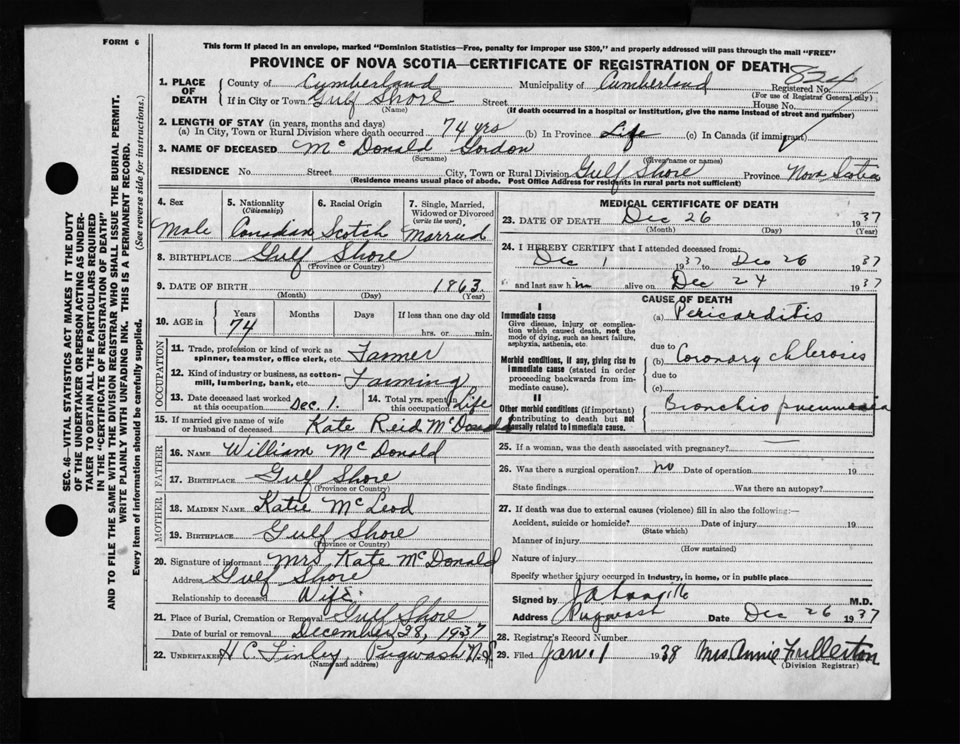 FORM 6
This form if placed in an envelope, marked "Dominion Statistics—Free, penalty for improper use $300," and properly addressed will pass through the mail "FREE"
PROVINCE OF NOVA SCOTIA—CERTIFICATE OF REGISTRATION OF DEATH
824
1. PLACE OF DEATH
County of Cumberland Municipality of Cumberland Registered No.
(For use of Registrar General only)
If in City or Town Gulf Shore Street House No.
(Name) (If death occurred in a hospital or institution, give the name instead of street and number)
2. LENGTH OF STAY (in years, months and days)
(a) In City, Town or Rural Division where death occurred 74 yrs (b) In Province Life (c) In Canada (if immigrant)
3. NAME OF DECEASED McDonald Gordon
(Surname) (Given name or names)
RESIDENCE No. Street City, Town or Rural Division Gulf Shore Province Nova Scotia
(Residence means usual place of abode. Post Office Address for residents in rural parts not sufficient)
4. Sex 5. Nationality (Citizenship) 6. Racial Origin 7. Single, Married, Widowed or Divorced (write the word)
Male Canadian Scotch Married
8. BIRTHPLACE Gulf Shore
(Province or Country)
9. DATE OF BIRTH 1863
(Month) (Day) (Year)
10. AGE in Years Months Days If less than one day old
74 hrs. or min.
OCCUPATION
11. Trade, profession or kind of work as spinner, teamster, office clerk, etc. Farmer
12. Kind of industry or business, as cotton-mill, lumbering, bank, etc. Farming
13. Date deceased last worked at this occupation Dec. 1. 14. Total yrs. spent in this occupation Life
15. If married give name of wife or husband of deceased Kate Reid McDonald
FATHER
16. NAME William McDonald
17. BIRTHPLACE Gulf Shore
(Province or Country)
MOTHER
18. MAIDEN NAME Katie McLeod
19. BIRTHPLACE Gulf Shore
(Province or Country)
20. Signature of informant Mrs Kate McDonald
Address Gulf Shore
Relationship to deceased Wife
21. Place of Burial, Cremation or Removal Gulf Shore
Date of burial or removal December 28, 1937
22. UNDERTAKER H C. Finley, Pugwash N.S
(Name and address)
MEDICAL CERTIFICATE OF DEATH
23. DATE OF DEATH Dec 26 1937
(Month) (Day) (Year)
24. I HEREBY CERTIFY that I attended deceased from:
Dec 1 1937 to Dec 26 1937
and last saw him alive on Dec 24 1937
CAUSE OF DEATH
I
Immediate cause
Give disease, injury or complication which caused death, not the mode of dying, such as heart failure, asphyxia, asthenia, etc.
(a) Pericarditis
due to
Morbid conditions, if any, giving rise to immediate cause (stated in order proceeding backwards from immediate cause).
(b) Coronary
due to
(c)
II
Other morbid conditions (if important) contributing to death but not causally related to immediate cause.
Bronchio pneumonia
25. If a woman, was the death associated with pregnancy?
26. Was there a surgical operation? no Date of operation 19
State findings Was there an autopsy?
27. If death was due to external causes (violence) fill in also the following:—
Accident, suicide or homicide? Date of injury 19
(State which)
Manner of injury
(How sustained)
Nature of injury
Specify whether injury occurred in industry, in home, or in public place
Signed by M.D.
Address Pugwash Date Dec 26 1937
28. Registrar's Record Number
29. Filed Jan. 1 1938 Mrs Annie Fullerton
(Division Registrar)
SEC. 46—VITAL STATISTICS ACT MAKES IT THE DUTY
OF THE UNDERTAKER OR PERSON ACTING AS UNDER-
TAKER TO OBTAIN ALL THE PARTICULARS REQUIRED
IN THE "CERTIFICATE OF REGISTRATION OF DEATH"
AND TO FILE THE SAME WITH THE DIVISION REGISTRAR WHO SHALL ISSUE THE BURIAL PERMIT.
WRITE PLAINLY WITH UNFADING INK. THIS IS A PERMANENT RECORD.
Every item of information should be carefully supplied. (See reverse side for instructions.)